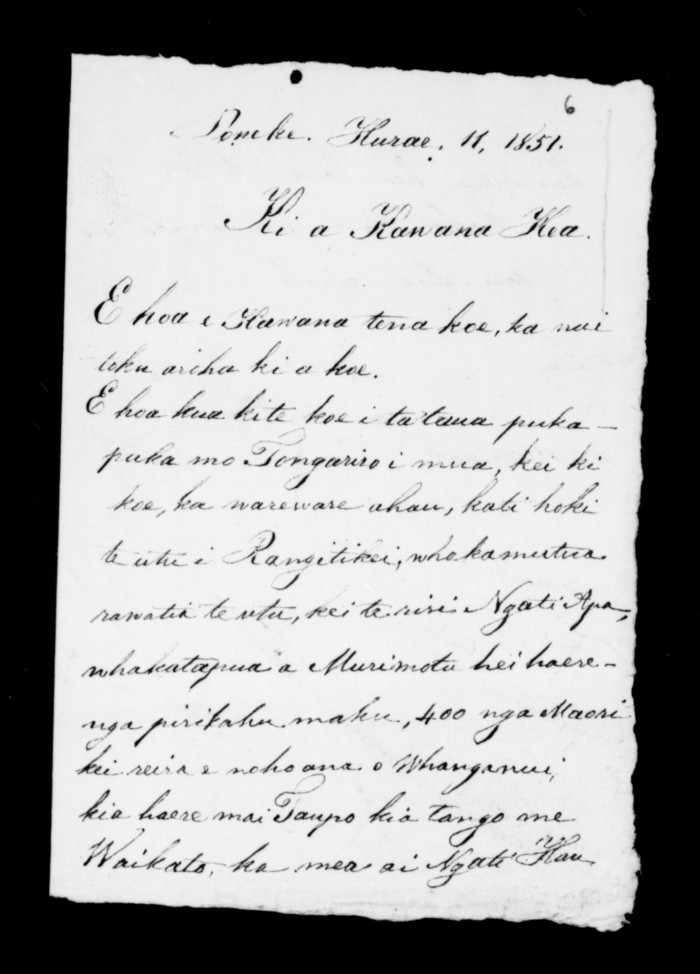 6
Poneke. Hurae. 11, 1851.
Ki a Kawana Kea.
E hoa e Kawana tena koe, ka nui
toku aroha ki a koe.
E hoa kua kite koe i ta taua puka-
puka mo Tongariro i mua, kei ki
koe, ka wareware ahau, kati hoki
te utu i Rangitikei, whakamutua
rawatia te utu, kei te riri Ngati Apa,
whakatapua a Murimotu hei haere-
nga pirikahu maku, 400 nga Maori
kei reira e noho ana o Whanganui,
kia haere mai Taupo kia tango me
Waikato, ka mea ai Ngati Hau